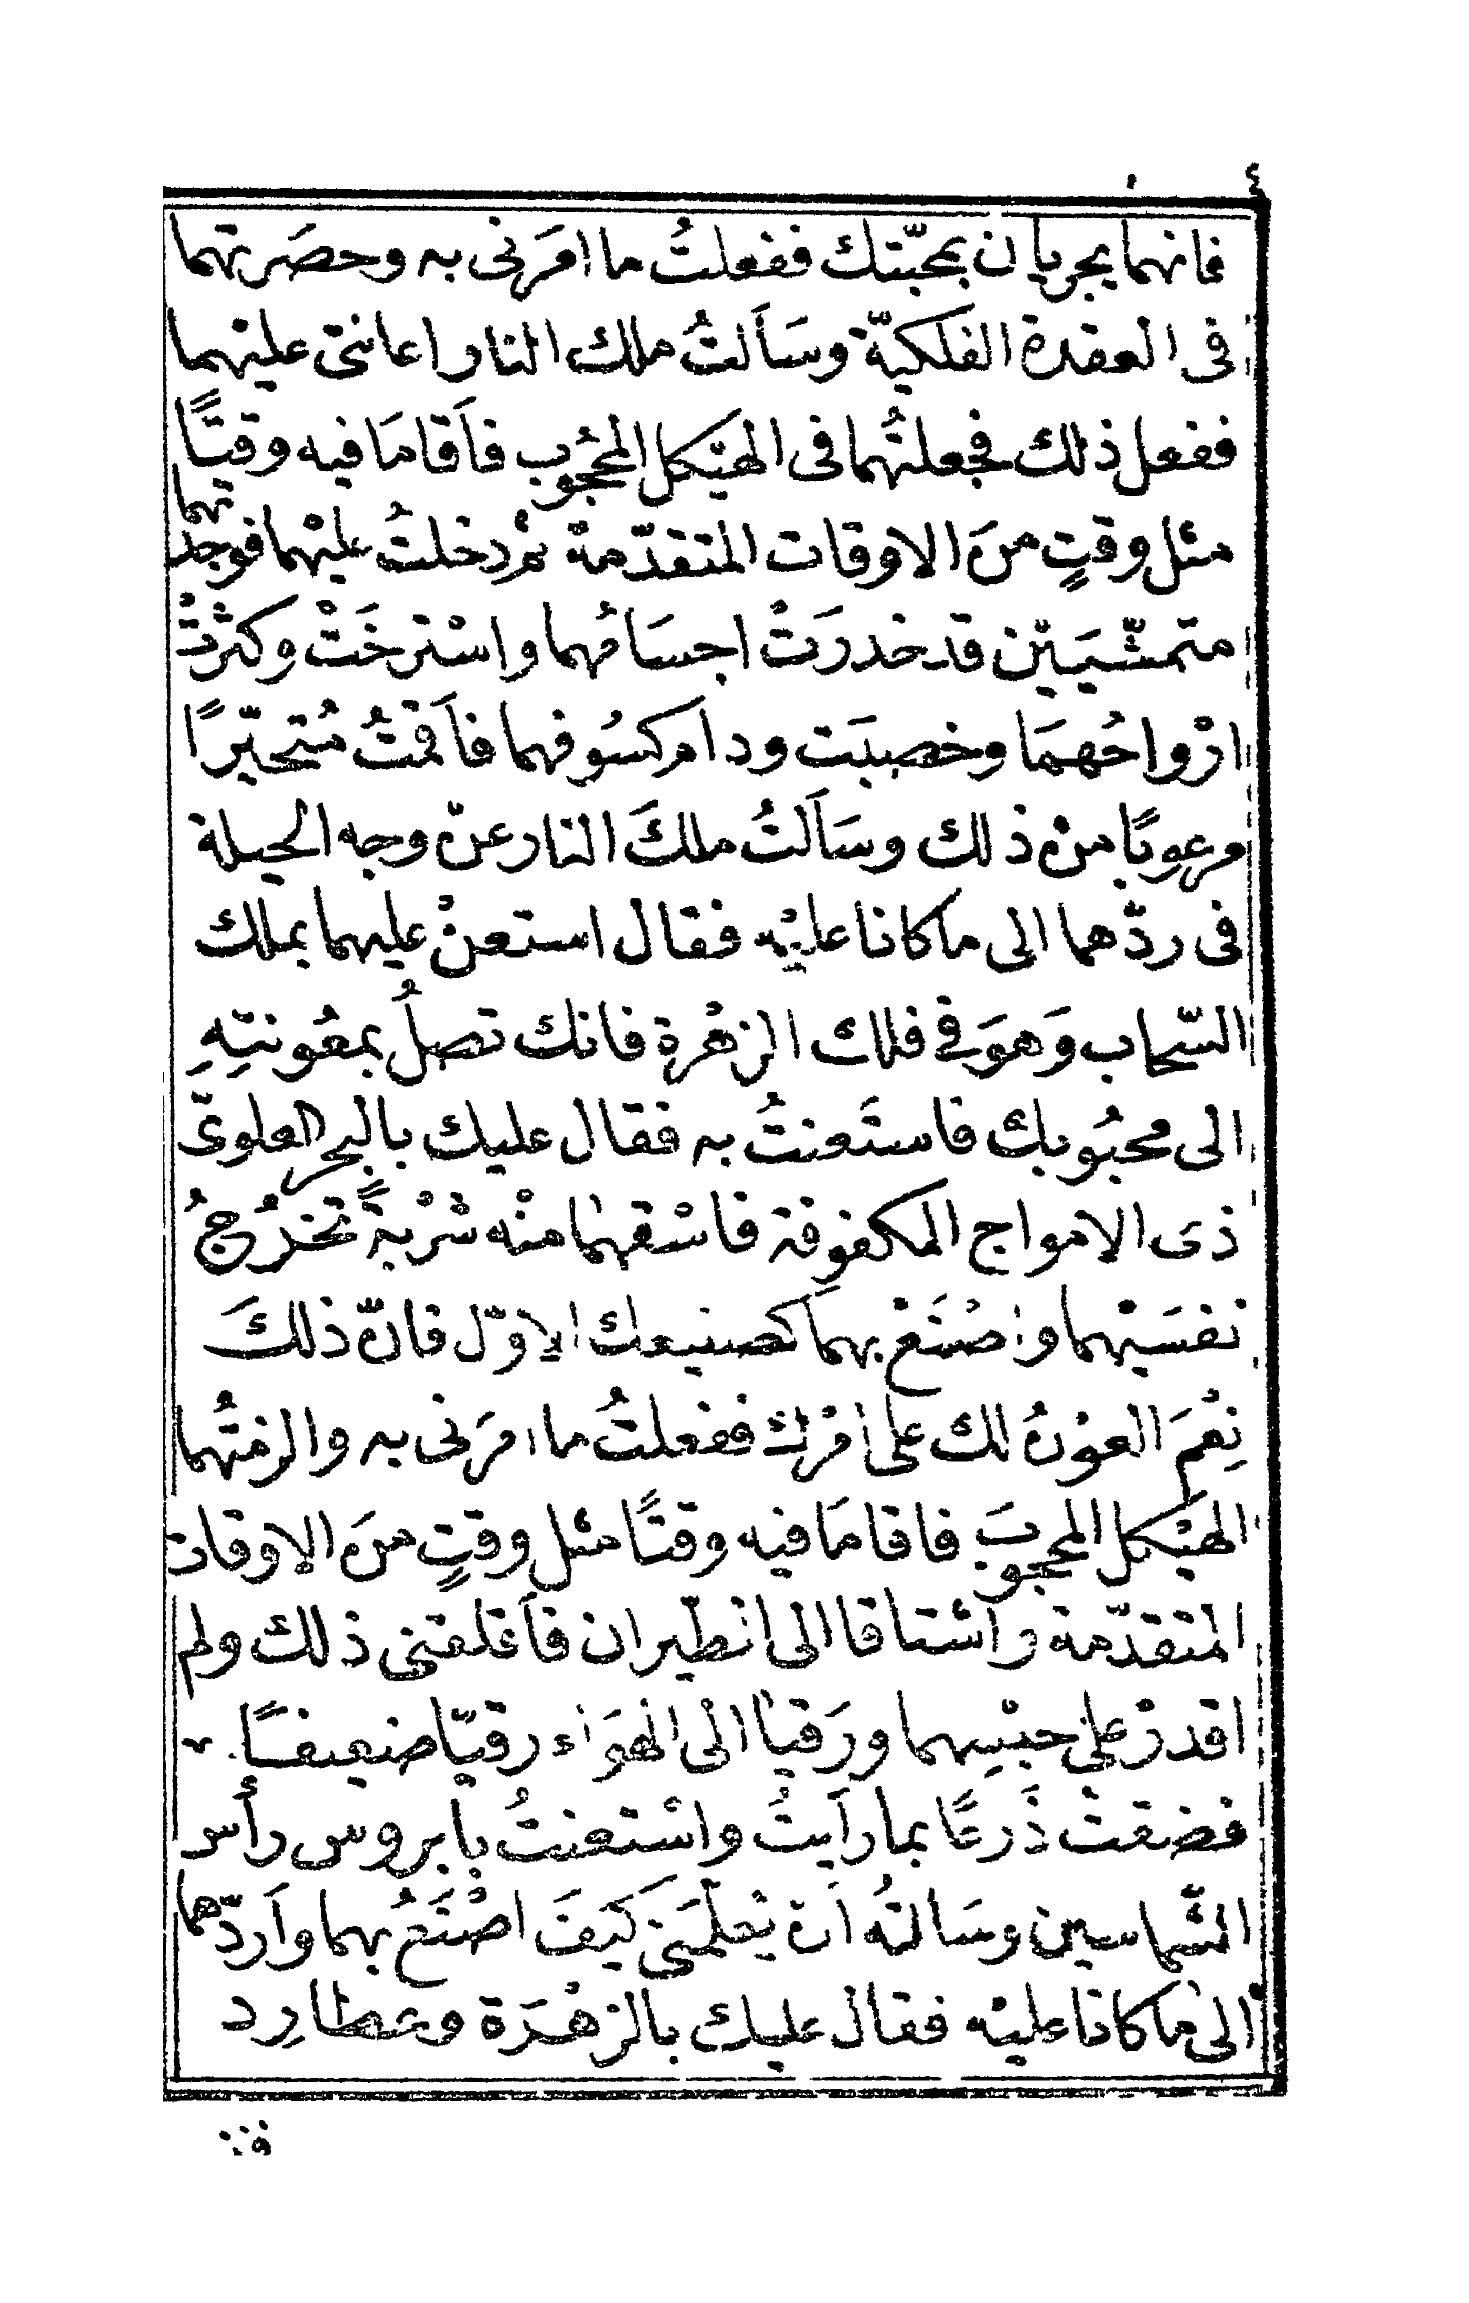 ٤
فانهما يجريان بمحبّتك ففعلتُ ما امَرَنى به وحصَرتهما
فى العقدة الفلكيّة وسَاَلتُ ملك النار اعانتى عليهما
ففعل ذلك فجعلتُهما فى الهيْكل المحجُوب فاَقامَا فيه وقتًا
مثل وقتٍ منَ الاوقات المتقدّمة ثم دخلتُ عليْهما فوجدتهما
متمشّيَيْن قد خدرَتْ اجسَامُهما واسْترخَتْ وكثرتْ
ارْواحُهمَا وخصبَت ودام كسُوفهما فاَقمْتُ مُتحيّرًا
مرعوبًا منْ ذلك وسَاَلتُ ملكَ النار عنْ وجه الحيلة
فى ردّهما الى ما كانا عليْه فقال استعنْ عليهما بملك
السّحاب وَهوَ فى فلك الزهْرة فانك تصلُ بمعُونتِهِ
الى محبُوبك فاستَعنتُ به فقال عليك بالبحر العلوىّ
ذى الامواج المكفوفة فاسْقهمَا منْه شرْبةً تخرُجُ
نفسَيْهما واصْنَعْ بهما كصنيعك الاوّل فانّ ذلكَ
نِعْمَ العوْنُ لك على امْرك ففعلتُ ما امرَنى به والزمتُهما
الهيْكل المحجوبَ فاقامَا فيه وقتًا مثل وقتٍ منَ الاوقات
المتقدّمة واشتاقا الى الطّيران فاَقلقنى ذلك ولم
اقدرْ على حبْسِهما ورَقيَا الى الهوَاء رقيّا ضعيفًا
فضقتْ ذَرعًا بما راَيتُ واسْتعنتُ بابروس رأس
الشّماسين وسَالتُه انْ يُعلّمَنى كيْفَ اصْنَعُ بهما واَردّهما
الى ما كانا عليْه فقال عليك بالزهْرَة وعطارِد